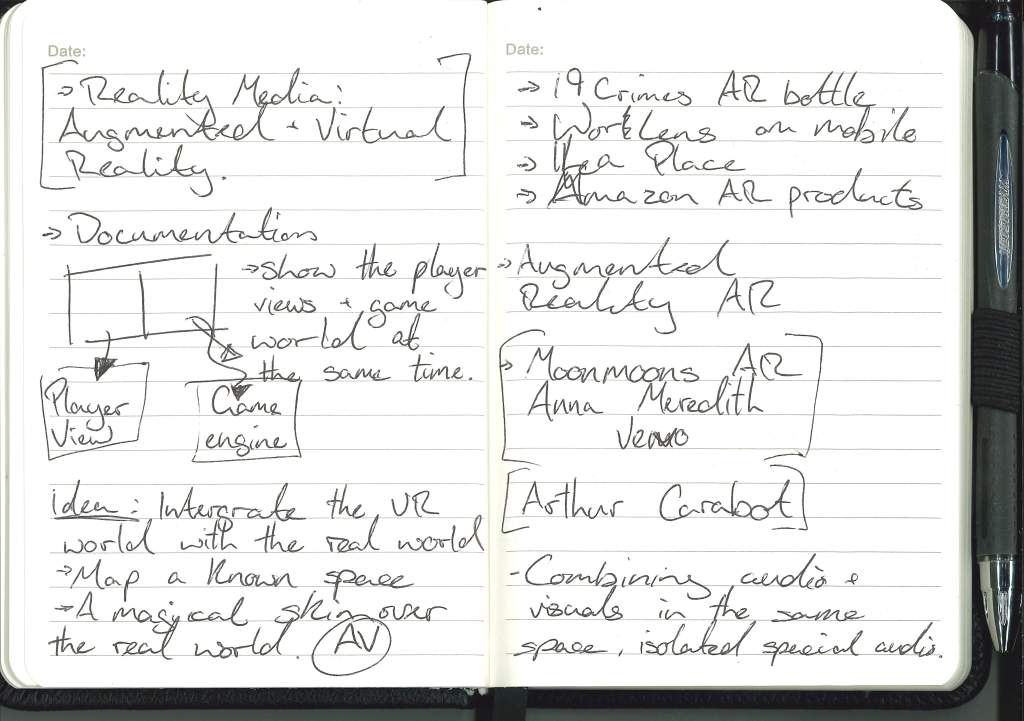 Date:
→ Reality Media:
Augmented + Virtual
Reality.
→ Documentation
→ show the player
views + game
world at
the same time.
Player
View
Game
engine
idea: Intergrate the VR
world with the real world
→ Map a known space
→ A magical skin over
the real world. AV
Date:
→ 19 Crimes AR bottle
→ WorkLens on mobile
→ Ikea Place
→ Amazon AR products
→ Augmented
Reality AR
→ Moonmoons AR
Anna Meredith
Arthur Carabot
- Combining audio +
visuals in the same
space, isolated special audio.